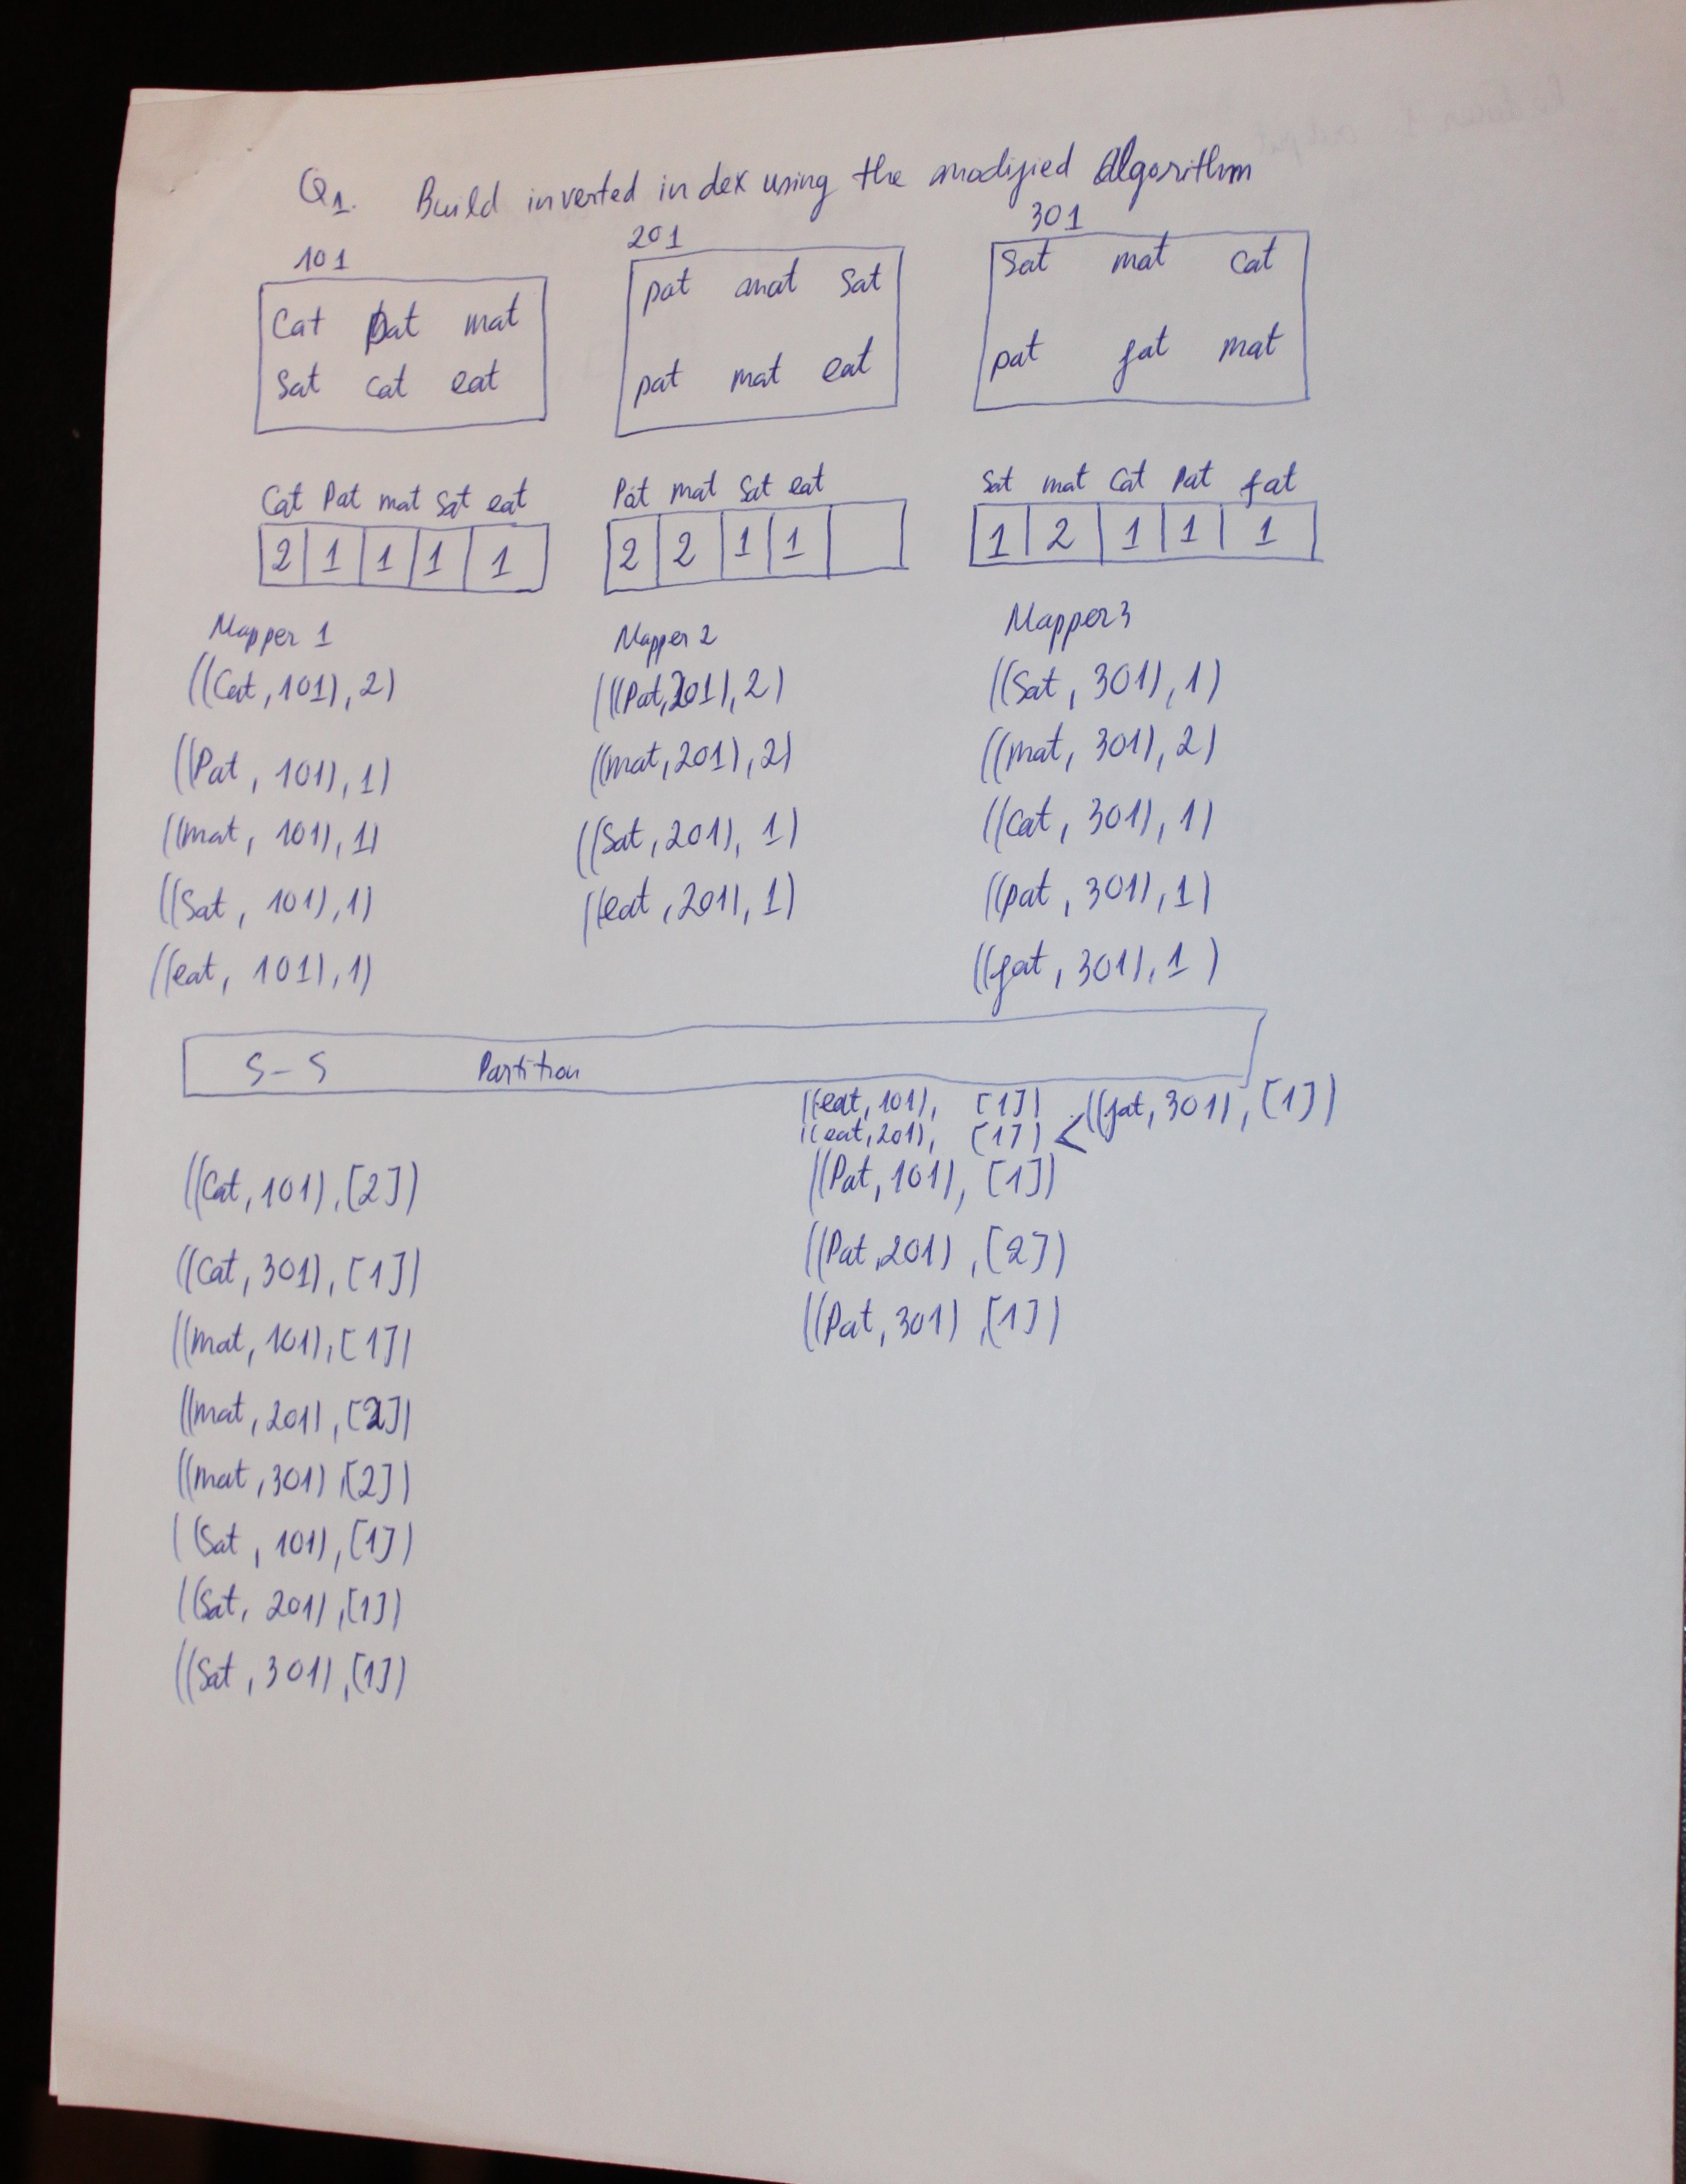 Q1. Build inverted index using the modified Algorithm
101 201 301
Cat pat mat
Sat cat eat
pat mat Sat
pat mat eat
Sat mat Cat
pat fat mat
Cat Pat mat Sat eat
2 1 1 1 1
Pat mat Sat eat
2 2 1 1
Sat mat Cat Pat fat
1 2 1 1 1
Mapper 1
((Cat, 101), 2)
((Pat, 101), 1)
((mat, 101), 1)
((Sat, 101), 1)
((eat, 101), 1)
Mapper 2
((Pat, 201), 2)
((mat, 201), 2)
((Sat, 201), 1)
((eat, 201), 1)
Mapper 3
((Sat, 301), 1)
((mat, 301), 2)
((Cat, 301), 1)
((pat, 301), 1)
((fat, 301), 1)
S-S Partition
((Cat, 101), [2])
((Cat, 301), [1])
((mat, 101), [1])
((mat, 201), [2])
((mat, 301), [2])
((Sat, 101), [1])
((Sat, 201), [1])
((Sat, 301), [1])
((eat, 101), [1])
((eat, 201), [1]) < ((fat, 301), [1])
((Pat, 101), [1])
((Pat, 201), [2])
((Pat, 301), [1])